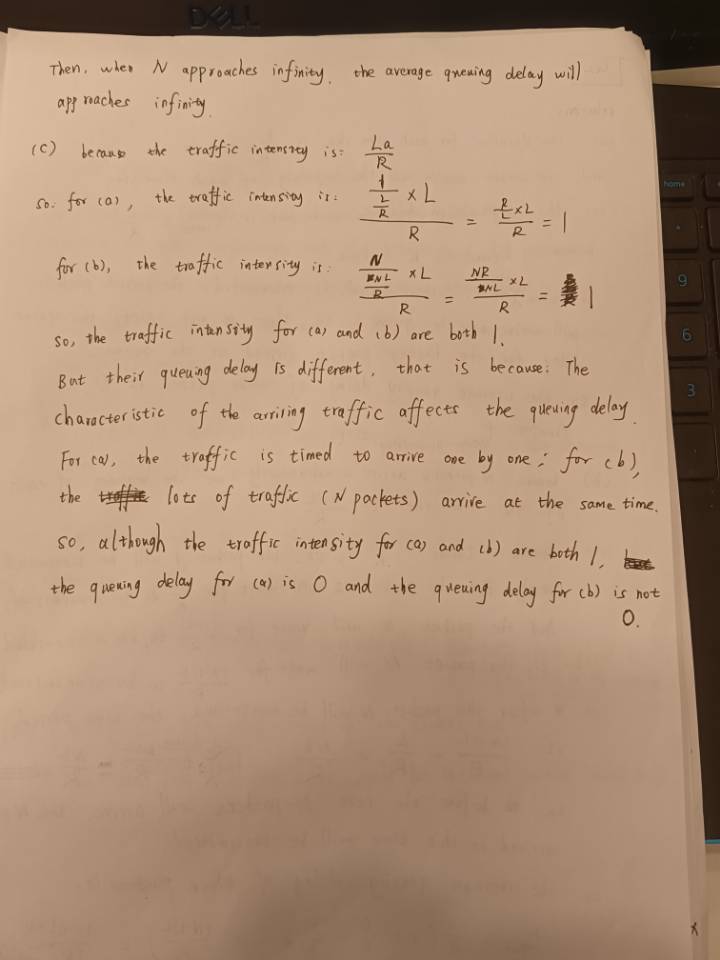 DELL
Then, when N approaches infinity, the average queuing delay will
approaches infinity.
(c) because the traffic intensity is: La/R
so: for (a), the traffic intensity is: (1/(L/R) × L)/R = (R/L × L)/R = 1
for (b), the traffic intensity is: (N/(NL/R) × L)/R = (NR/NL × L)/R = 1
so, the traffic intensity for (a) and (b) are both 1.
But their queuing delay is different, that is because: The
characteristic of the arriving traffic affects the queuing delay.
For (a), the traffic is timed to arrive one by one; for (b),
the lots of traffic (N packets) arrive at the same time.
so, although the traffic intensity for (a) and (b) are both 1,
the queuing delay for (a) is 0 and the queuing delay for (b) is not
0.
home
9
6
3